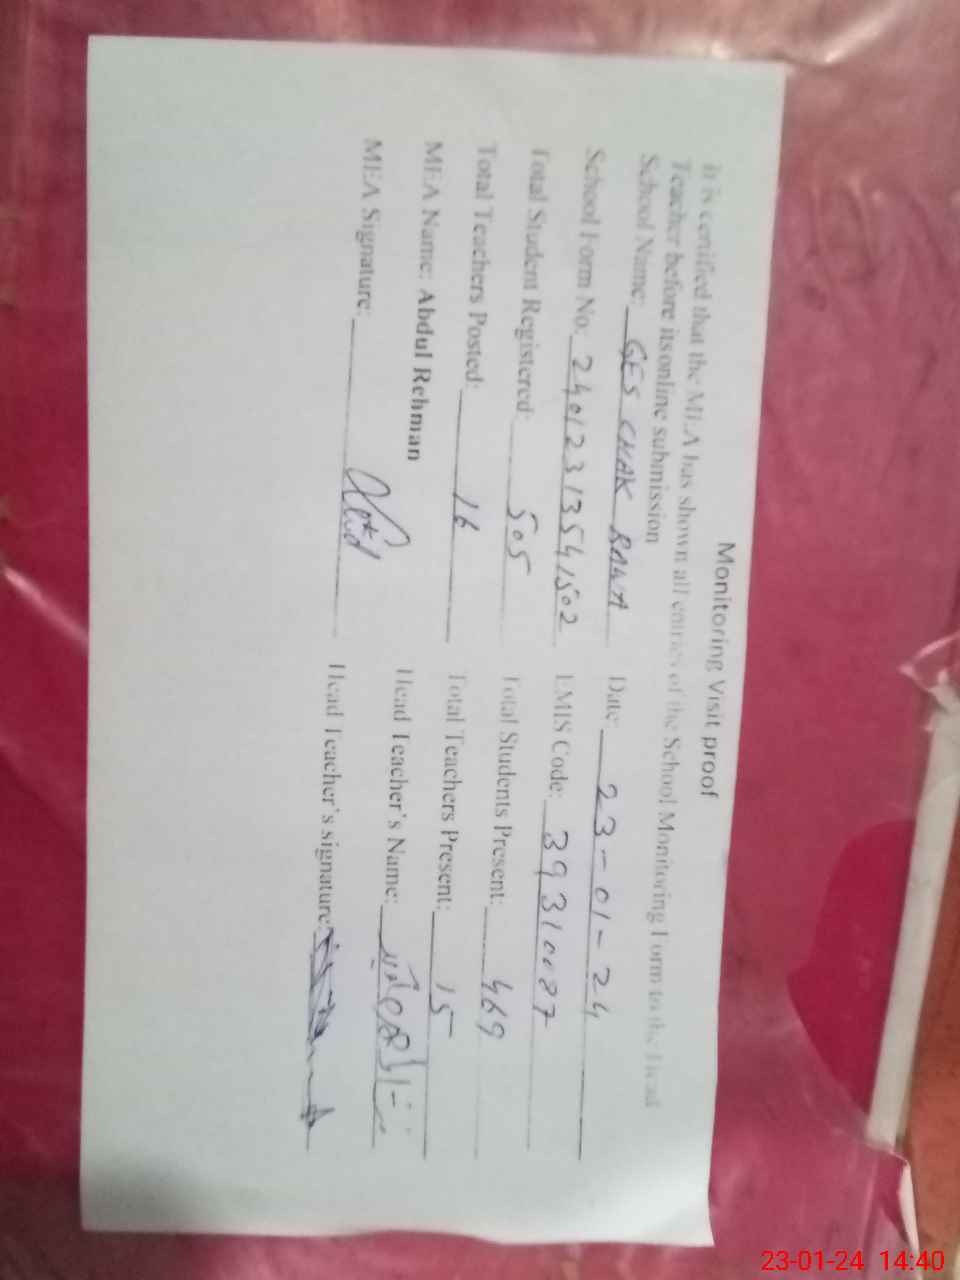 Monitoring Visit proof
It is certified that the MEA has shown all entries of the School Monitoring Form to the Head
Teacher before its online submission
School Name: GES CHAK RAWA Date: 23-01-24
School Form No. 24012313541502 EMIS Code: 39310087
Total Student Registered: 505 Total Students Present: 469
Total Teachers Posted: 16 Total Teachers Present: 15
MEA Name: Abdul Rehman Head Teacher's Name:
MEA Signature: Head Teacher's signature:
23-01-24 14:40